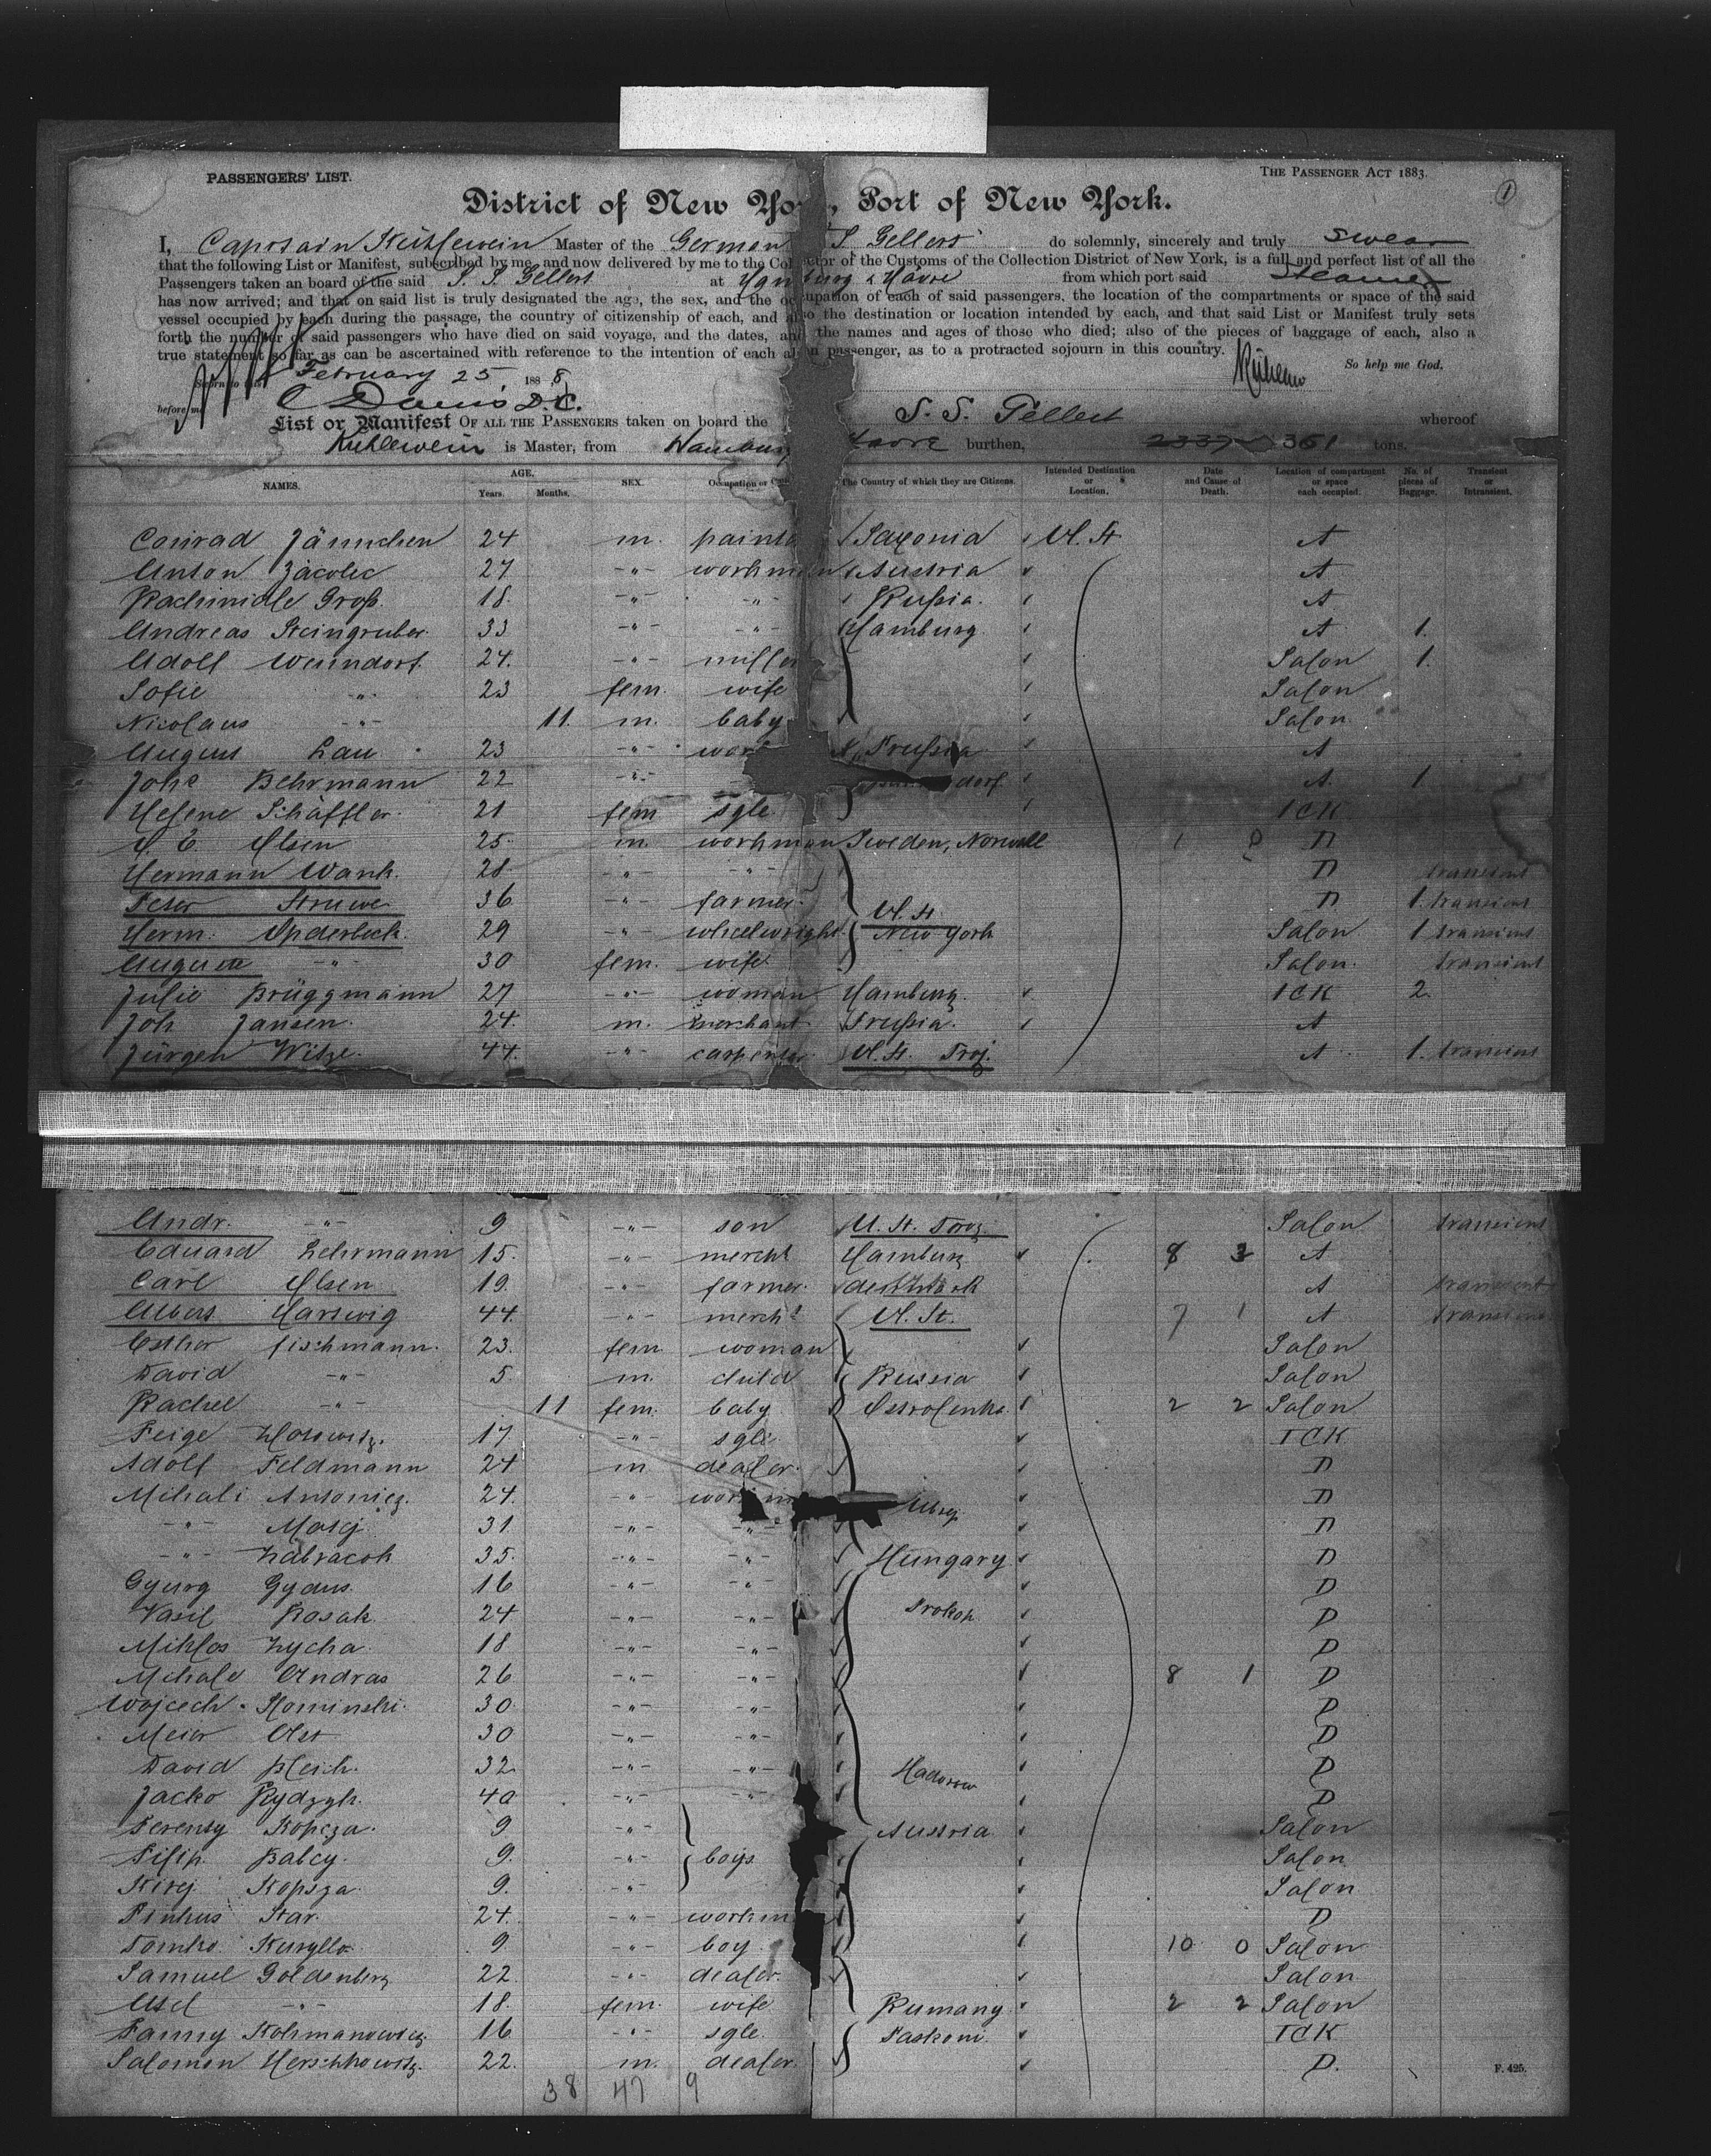 PASSENGERS' LIST. THE PASSENGER ACT 1883. 1
District of New Yo , Port of New York.
I, Captain Kühlewein Master of the German S Gellert do solemnly, sincerely and truly swear
that the following List or Manifest, subscribed by me, and now delivered by me to the Collector of the Customs of the Collection District of New York, is a full and perfect list of all the
Passengers taken an board of the said S. S. Gellert at Hamburg & Havre from which port said Steamer
has now arrived; and that on said list is truly designated the age, the sex, and the occupation of each of said passengers. the location of the compartments or space of the said
vessel occupied by each during the passage, the country of citizenship of each, and also the destination or location intended by each, and that said List or Manifest truly sets
forth the number of said passengers who have died on said voyage, and the dates, and the names and ages of those who died; also of the pieces of baggage of each, also a
true statement so far as can be ascertained with reference to the intention of each alien passenger, as to a protracted sojourn in this country.
So help me God.
Sworn to this February 25, 1888
before me C Davis D.C.
List or Manifest OF ALL THE PASSENGERS taken on board the S. S. Gellert whereof
Kuhlewein is Master, from Hamburg Havre burthen, 361 tons.
NAMES. AGE. Years. Months. SEX. Occupation or The Country of which they are Citizens. Intended Destination or Location. Date and Cause of Death. Location of compartment or space each occupied. No. of pieces of Baggage. Transient or Intransient.
Conrad Jännchen 24 m. painte Saxonia U. St A
Anton Jacolic 27 -"- workman Austria A
Rachmidle Groß 18 -"- -"- Rußia. A
Andreas Steingruber 33 -"- -"- Hamburg A 1.
Adolf Wenndorf 24. -"- miller Salon 1.
Sofie -"- 23 fem. wife Salon
Nicolaus -"- 11 m. baby Salon
August Lau 23 -"- work Prußia A
Johs Behrmann 22 -"- dorf A. 1
Helene Schäffler 21 fem sgle. ICK
Olsen 25 m. workman Sweden, D
Hermann Wank. 28 -"- -"- D transient
Peter Struwe 36 -"- farmer U. St. D 1. transient
Herm. Opderbeck. 29 -"- wheelwright New York Salon 1 transient
Augusta -"- 30 fem. wife. Salon. transient
Julie Brüggmann 27 -"- woman Hamburg. ICK 2.
Joh Jansen. 24. m. merchant Prußia. A
Jürgen Witze. 44. -"- carpenter U. St. A 1. transient
Andr. -"- 9 -"- son U. St. Salon transient
Eduard Lehrmann 15. -"- mercht Hamburg 8 3 A
Carl Olsen 19. -"- farmer. A transient
Albert Hartwig 44. -"- mercht U. St. 7 1 A transient
Esther Fischmann. 23. fem woman Salon
David -"- 5 m. child Russia Salon
Rachel -"- 11 fem. baby Ostrolenka 2 2 Salon
Feige 17 -"- sgle ICK
Adolf Feldmann 24 m dealer. D
Mihali Antonicz. 24. -"- workm D
-"- Masej 31 -"- -"- D
-"- Zabracok 35. -"- -"- Hungary D
Gyurg Gydus. 16 -"- -"- D
Vasil Kosak 24 -"- -"- Prokop. D
Miklos Lycha. 18 -"- -"- D
Mihale Andras 26 -"- -"- 8 1 D
Wojcech Kominski. 30 -"- -"- D
Meier Ast 30 -"- -"- D
David 32 -"- -"- Hadorow D
Jacko Rydzyk. 40 -"- -"- D
Ferensy Kopcza. 9 -"- Austria. Salon
Filip. Babey. 9. -"- boys. Salon
Kirej Kopsza 9. -"- Salon
Pinkus Star. 24. -"- workm D
Tomko Kuryllo 9 -"- boy 10 0 Salon
Samuel Goldenberg 22. -"- dealer. Salon
-"- 18. fem. wife Rumany 2 2 Salon
Fanny Kohmanowicz 16 -"- sgle. Paskani. ICK
Salomon Herschkowitz. 22. m. dealer D.
F. 425.
38 47 9